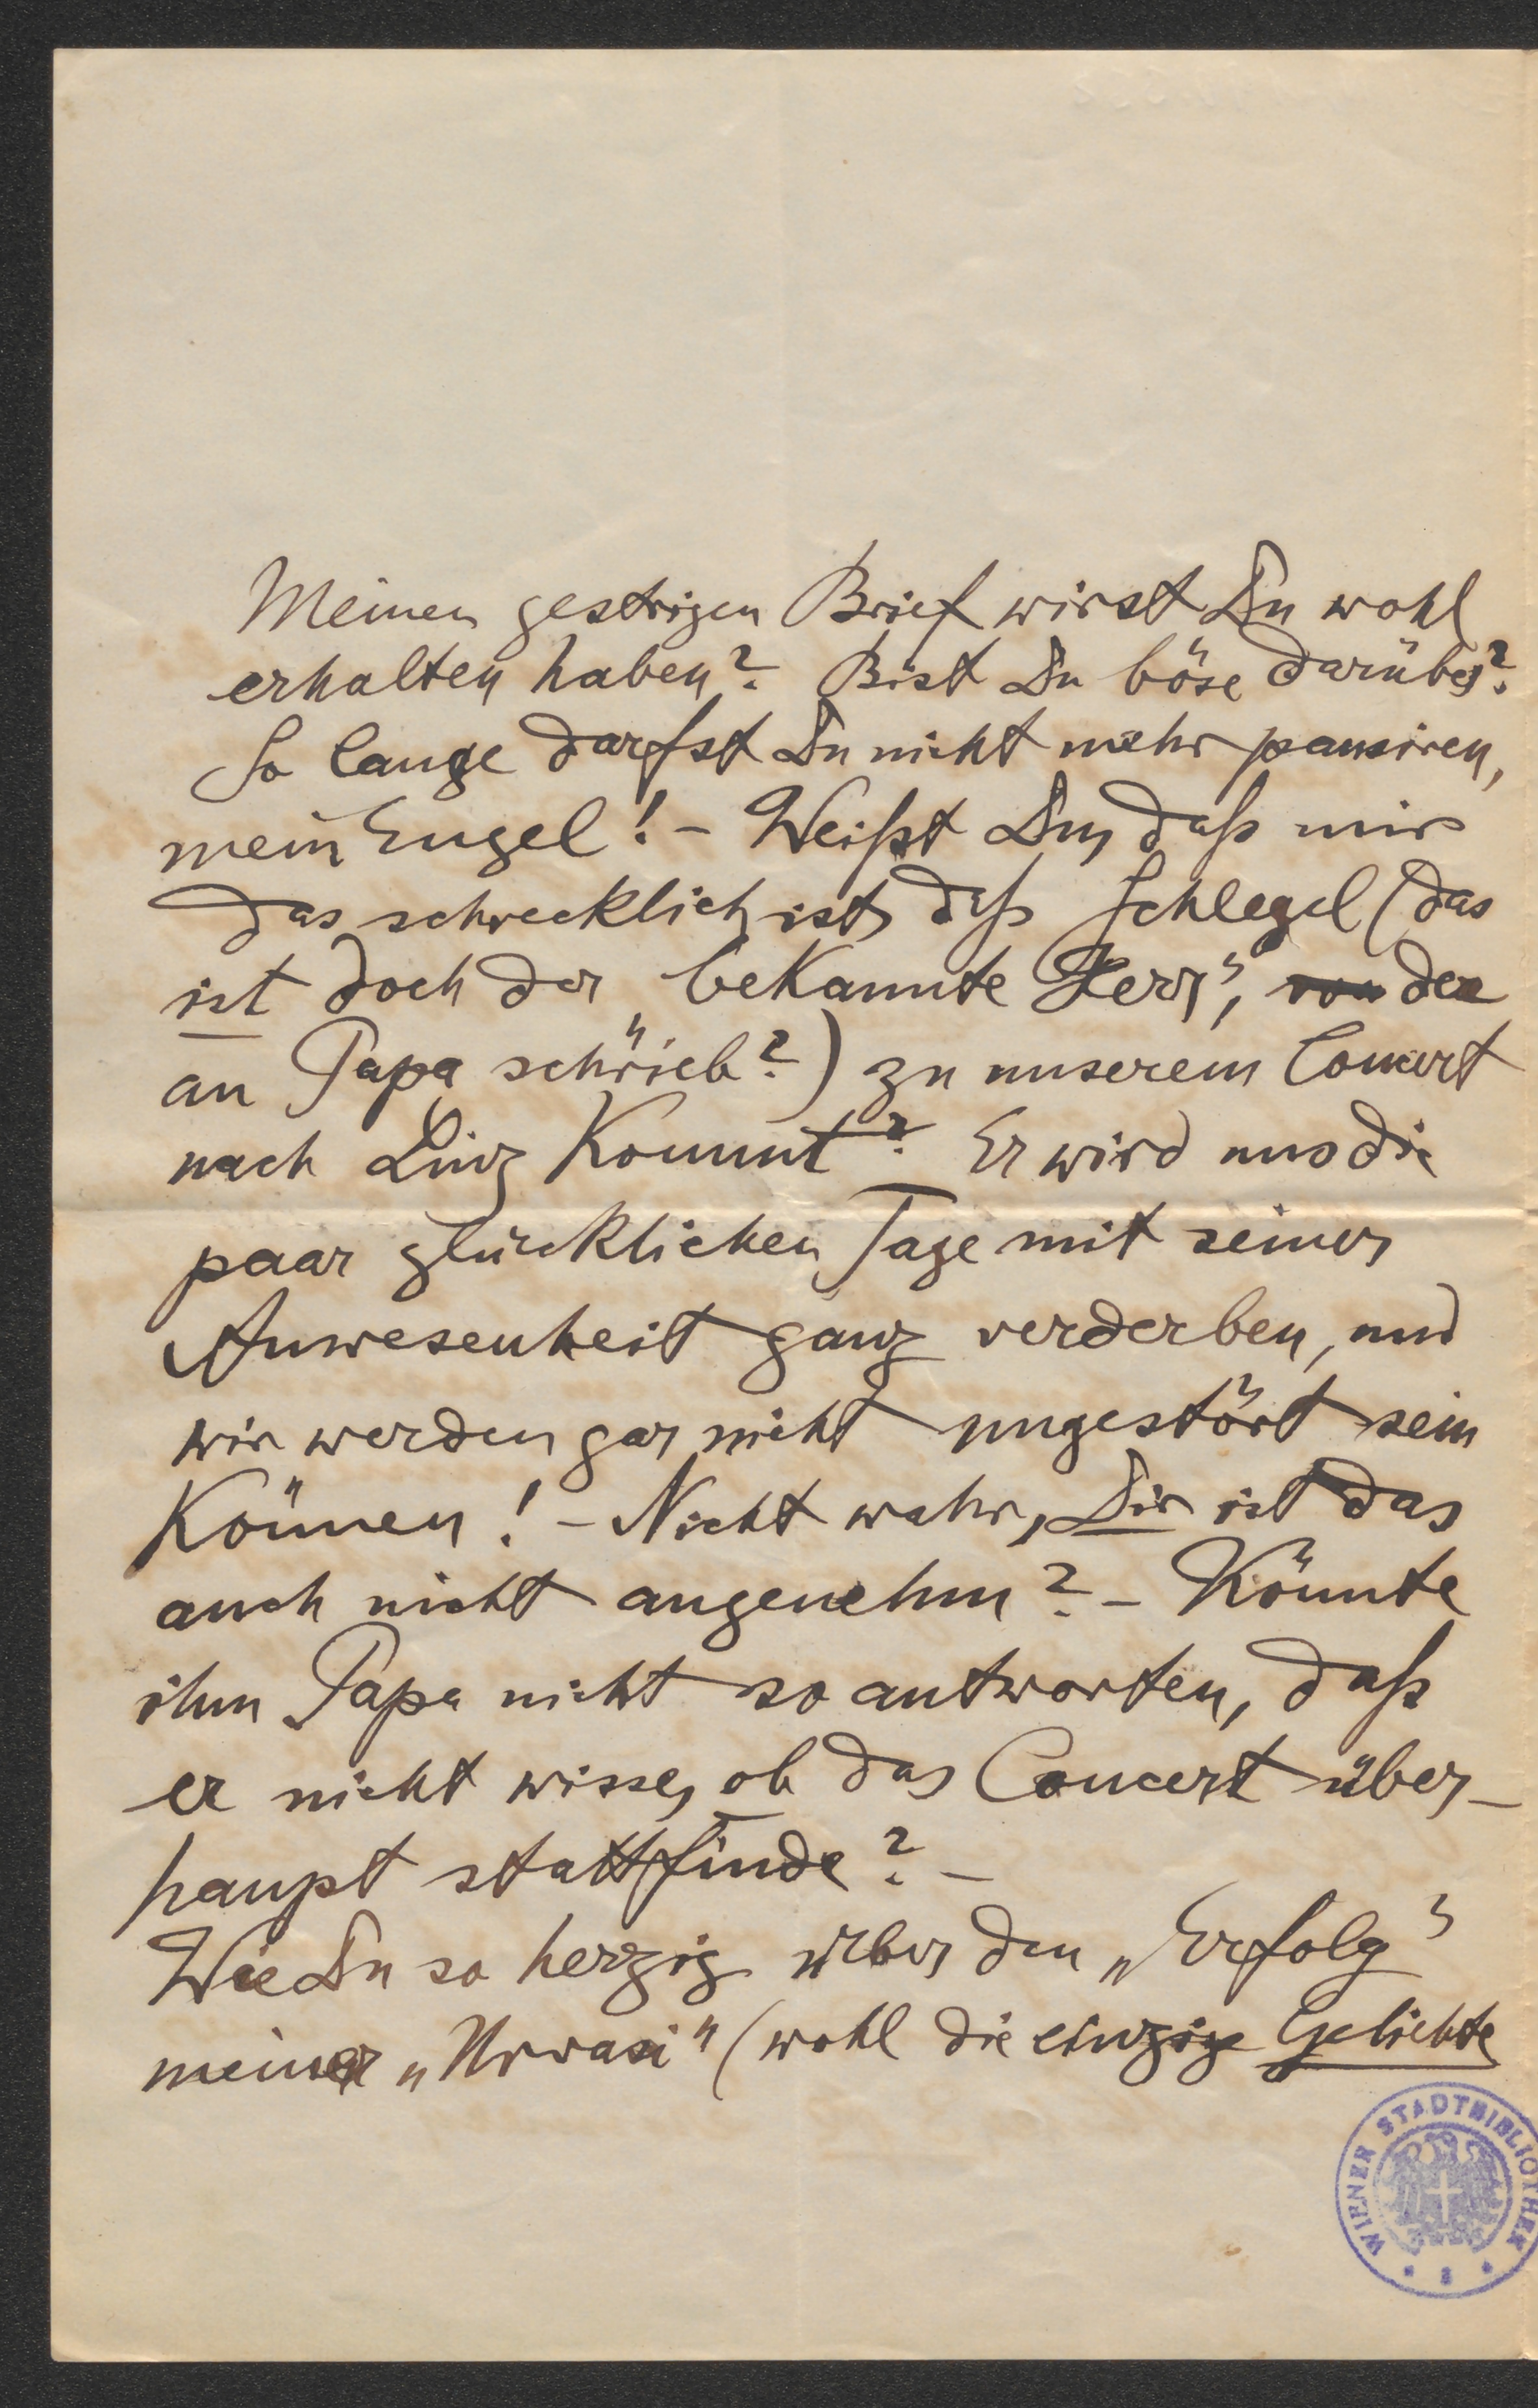 Meinen gestrigen Brief wirst Du wohl
erhalten haben? Bist Du böse darüber?
So lange darfst Du nicht mehr pausiren,
mein Engel! – Weißt Du, daß mir
das schrecklich ist, daß Schlegel (das
ist doch der „bekannte Herr“, von der
an Papa schrieb?) zu unserem Concert
nach Linz kommt? Er wird uns die
paar glücklichen Tage mit seiner
Anwesenheit ganz verderben, und
wir werden gar nicht ungestört sein
können! – Nicht wahr, Dir ist das
auch nicht angenehm? – Könnte
ihm Papa nicht so antworten, daß
er nicht wisse, ob das Concert über-
haupt stattfinde? –
Wie Du so herzig über den „Erfolg“
meiner „Urvasi“ (wohl die einzige Geliebte
WIENER STADTBIBLIOTHEK